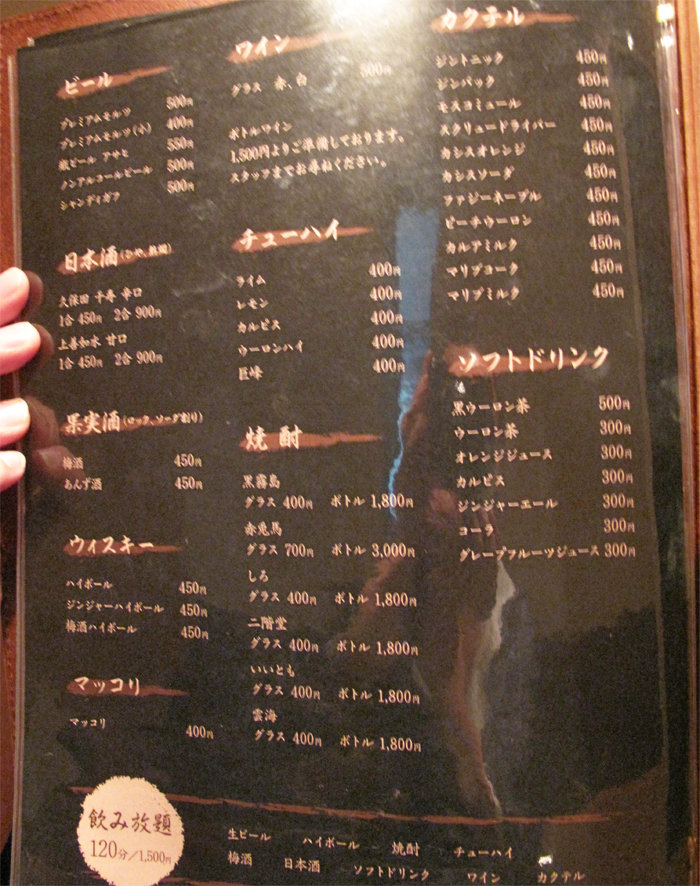 ビール
プレミアムモルツ 500円
プレミアムモルツ(小) 400円
瓶ビール アサヒ 550円
ノンアルコールビール 500円
シャンディガフ 500円
日本酒(ひや、熱燗)
久保田 千寿 辛口
1合 450円 2合 900円
上善如水 甘口
1合 450円 2合 900円
果実酒(ロック、ソーダ割り)
梅酒 450円
あんず酒 450円
ウィスキー
ハイボール 450円
ジンジャーハイボール 450円
梅酒ハイボール 450円
マッコリ
マッコリ 400円
ワイン
グラス 赤、白 500円
ボトルワイン
1,500円よりご準備しております。
スタッフまでお尋ねください。
チューハイ
ライム 400円
レモン 400円
カルピス 400円
ウーロンハイ 400円
巨峰 400円
焼酎
黒霧島
グラス 400円 ボトル 1,800円
赤兎馬
グラス 700円 ボトル 3,000円
しろ
グラス 400円 ボトル 1,800円
二階堂
グラス 400円 ボトル 1,800円
いいとも
グラス 400円 ボトル 1,800円
雲海
グラス 400円 ボトル 1,800円
カクテル
ジントニック 450円
ジンバック 450円
モスコミュール 450円
スクリュードライバー 450円
カシスオレンジ 450円
カシスソーダ 450円
ファジーネーブル 450円
ピーチウーロン 450円
カルアミルク 450円
マリブコーク 450円
マリブミルク 450円
ソフトドリンク
黒ウーロン茶 500円
ウーロン茶 300円
オレンジジュース 300円
カルピス 300円
ジンジャーエール 300円
コーラ 300円
グレープフルーツジュース 300円
飲み放題
120分/1,500円
生ビール ハイボール 焼酎 チューハイ
梅酒 日本酒 ソフトドリンク ワイン カクテル